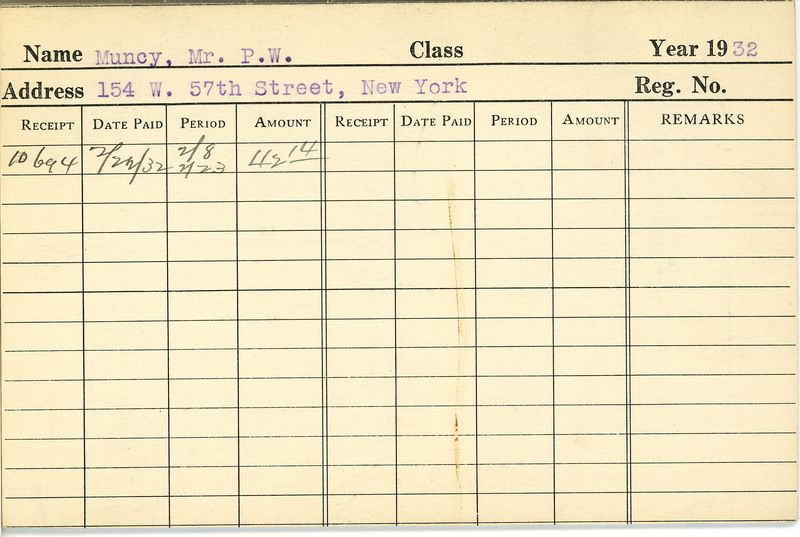 Name Muncy, Mr. P.W. Class Year 1932
Address 154 W. 57th Street, New York Reg. No.
RECEIPT DATE PAID PERIOD AMOUNT RECEIPT DATE PAID PERIOD AMOUNT REMARKS
10694 2/8
2/23